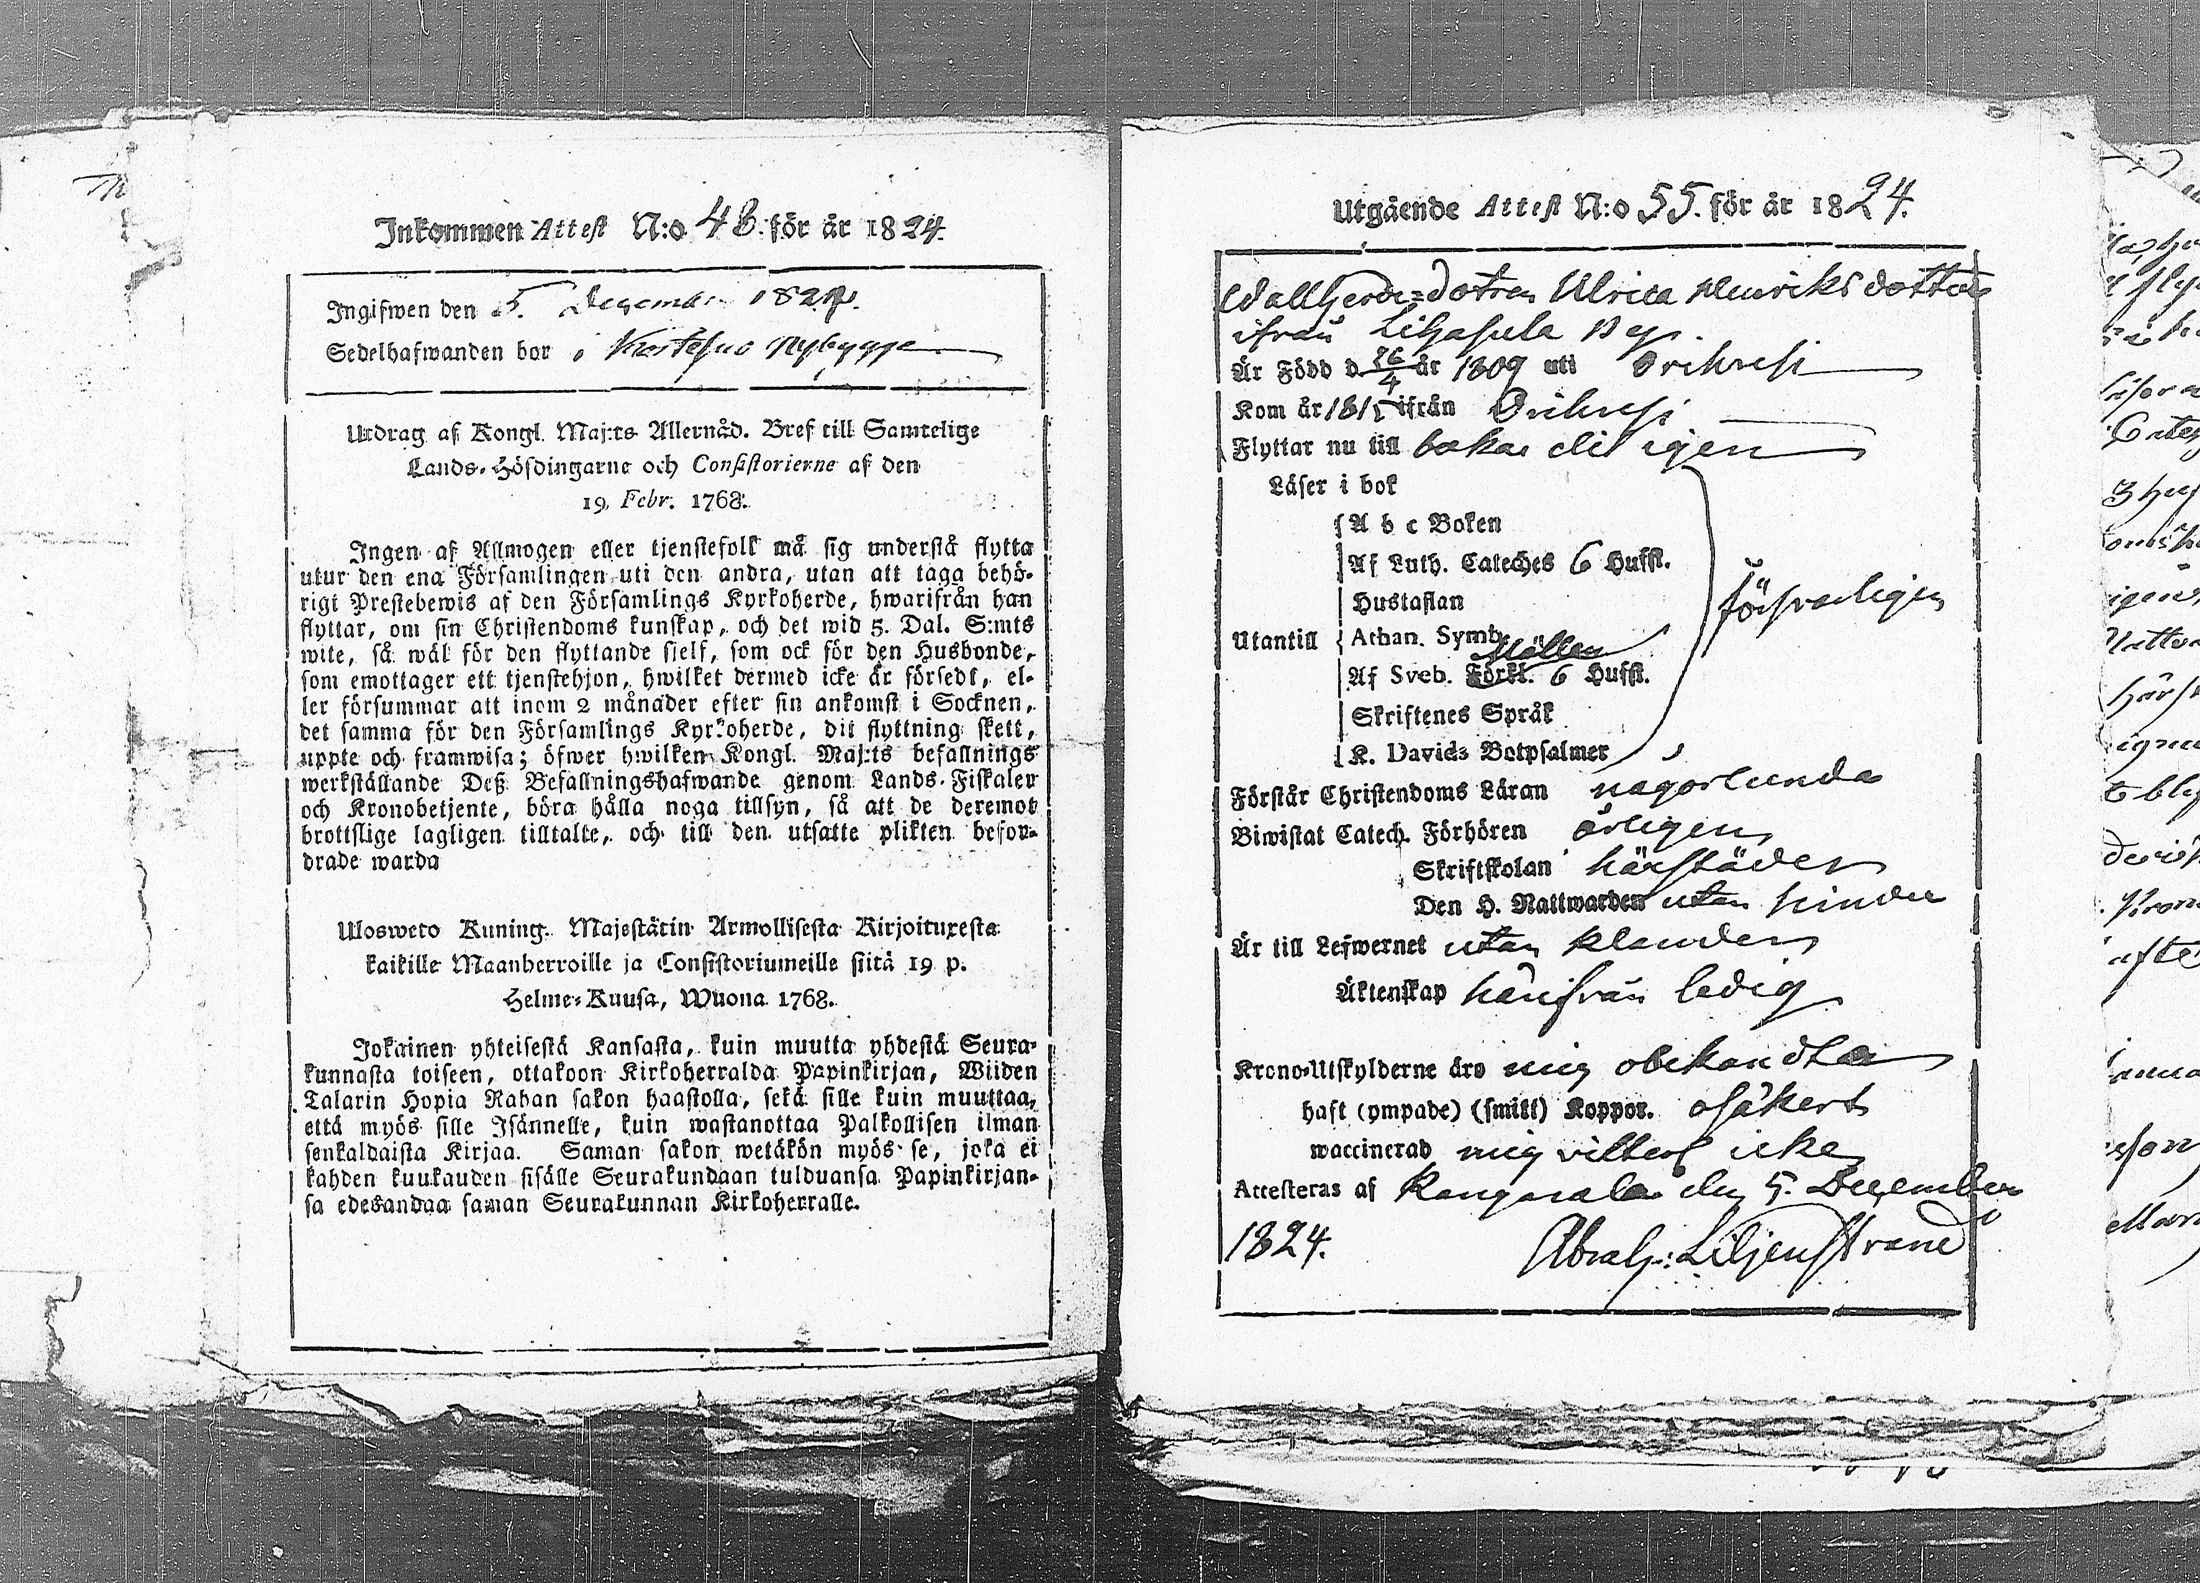 Inkommen Attest N:o 48 för år 1824.
Ingifwen den 5. December 1824.
Sedelhafwanden bor i Kortesuo Nybygge
Utdrag af Kongl. Maj:ts Allernåd. Bref till Samtelige
Lands-Höfdingarne och Consistorierne af den
19. Febr. 1768.
Ingen af Allmogen eller tjenstefolk må sig understå flytta
utur den ena Församlingen uti den andra, utan att taga behö-
rigt Prestebewis af den Församlings Kyrkoherde, hwarifrån han
flyttar, om sin Christendoms kunskap, och det wid 5. Dal. S:mts
wite, så wäl för den flyttande sjelf, som ock för den Husbonde,
som emottager ett tjenstehjon, hwilket dermed icke är försedt, el-
ler försummar att inom 2 månader efter sin ankomst i Socknen,
det samma för den Församlings Kyrkoherde, dit flyttning skett,
uppte och framwisa; öfwer hwilken Kongl. Maj:ts befallnings
werkställande Deß Befallningshafwande genom Lands-Fiskaler
och Kronobetjente, böra hålla noga tillsyn, så att de deremot
brottslige lagligen tilltalte, och till den utsatte plikten befor-
drade warda
Ulosweto Kuning. Majestätin Armollisesta Kirjoituxesta
kaikille Maanherroille ja Consistoriumeille siitä 19 p.
Helme-Kuusa, Wuona 1768.
Jokainen yhteisestä Kansasta, kuin muutta yhdestä Seura-
kunnasta toiseen, ottakoon Kirkoherralda Papinkirjan, Wiiden
Talarin Hopia Rahan sakon haastolla, sekä sille kuin muuttaa,
että myös sille Isännelle, kuin wastanottaa Palkollisen ilman
senkaldaista Kirjaa. Saman sakon wetäkön myös se, joka ei
kahden kuukauden sisälle Seurakundaan tulduansa Papinkirjan-
sa edesandaa saman Seurakunnan Kirkoherralle.
Utgående Attest N:o 55. för år 1824.
Wallherde-dotren Ulrica Henriksdotter
ifrån Lihasula By.
Är Född d 26/4 år 1809 uti Orihvesi
Kom år 1815 ifrån Orihvesi
Flyttar nu till bakas dit igen
Läser i bok
A b c Boken
Af Luth. Cateches 6 Hufst.
Hustaflan
Utantill Athan. Symb.
Af Sveb. Förkl. 6 Hufst.
Skriftenes Språk
K. Davids Botpsalmer
försvarligen
Förstår Christendoms Läran någorlunda
Biwistat Catech. Förhören årligen
Skriftskolan härstädes
Den H. Nattwarden utan hinder
Är till Lefwernet utan klander
Äktenskap härifrån ledig
Krono-Utskylderne äro mig obekandta
haft (ympade) (smitt) Koppor. osäkert
waccinerad mig vitterl. icke
Attesteras af Kangasala den 5. December
1824. Abrah: Liljenstrand